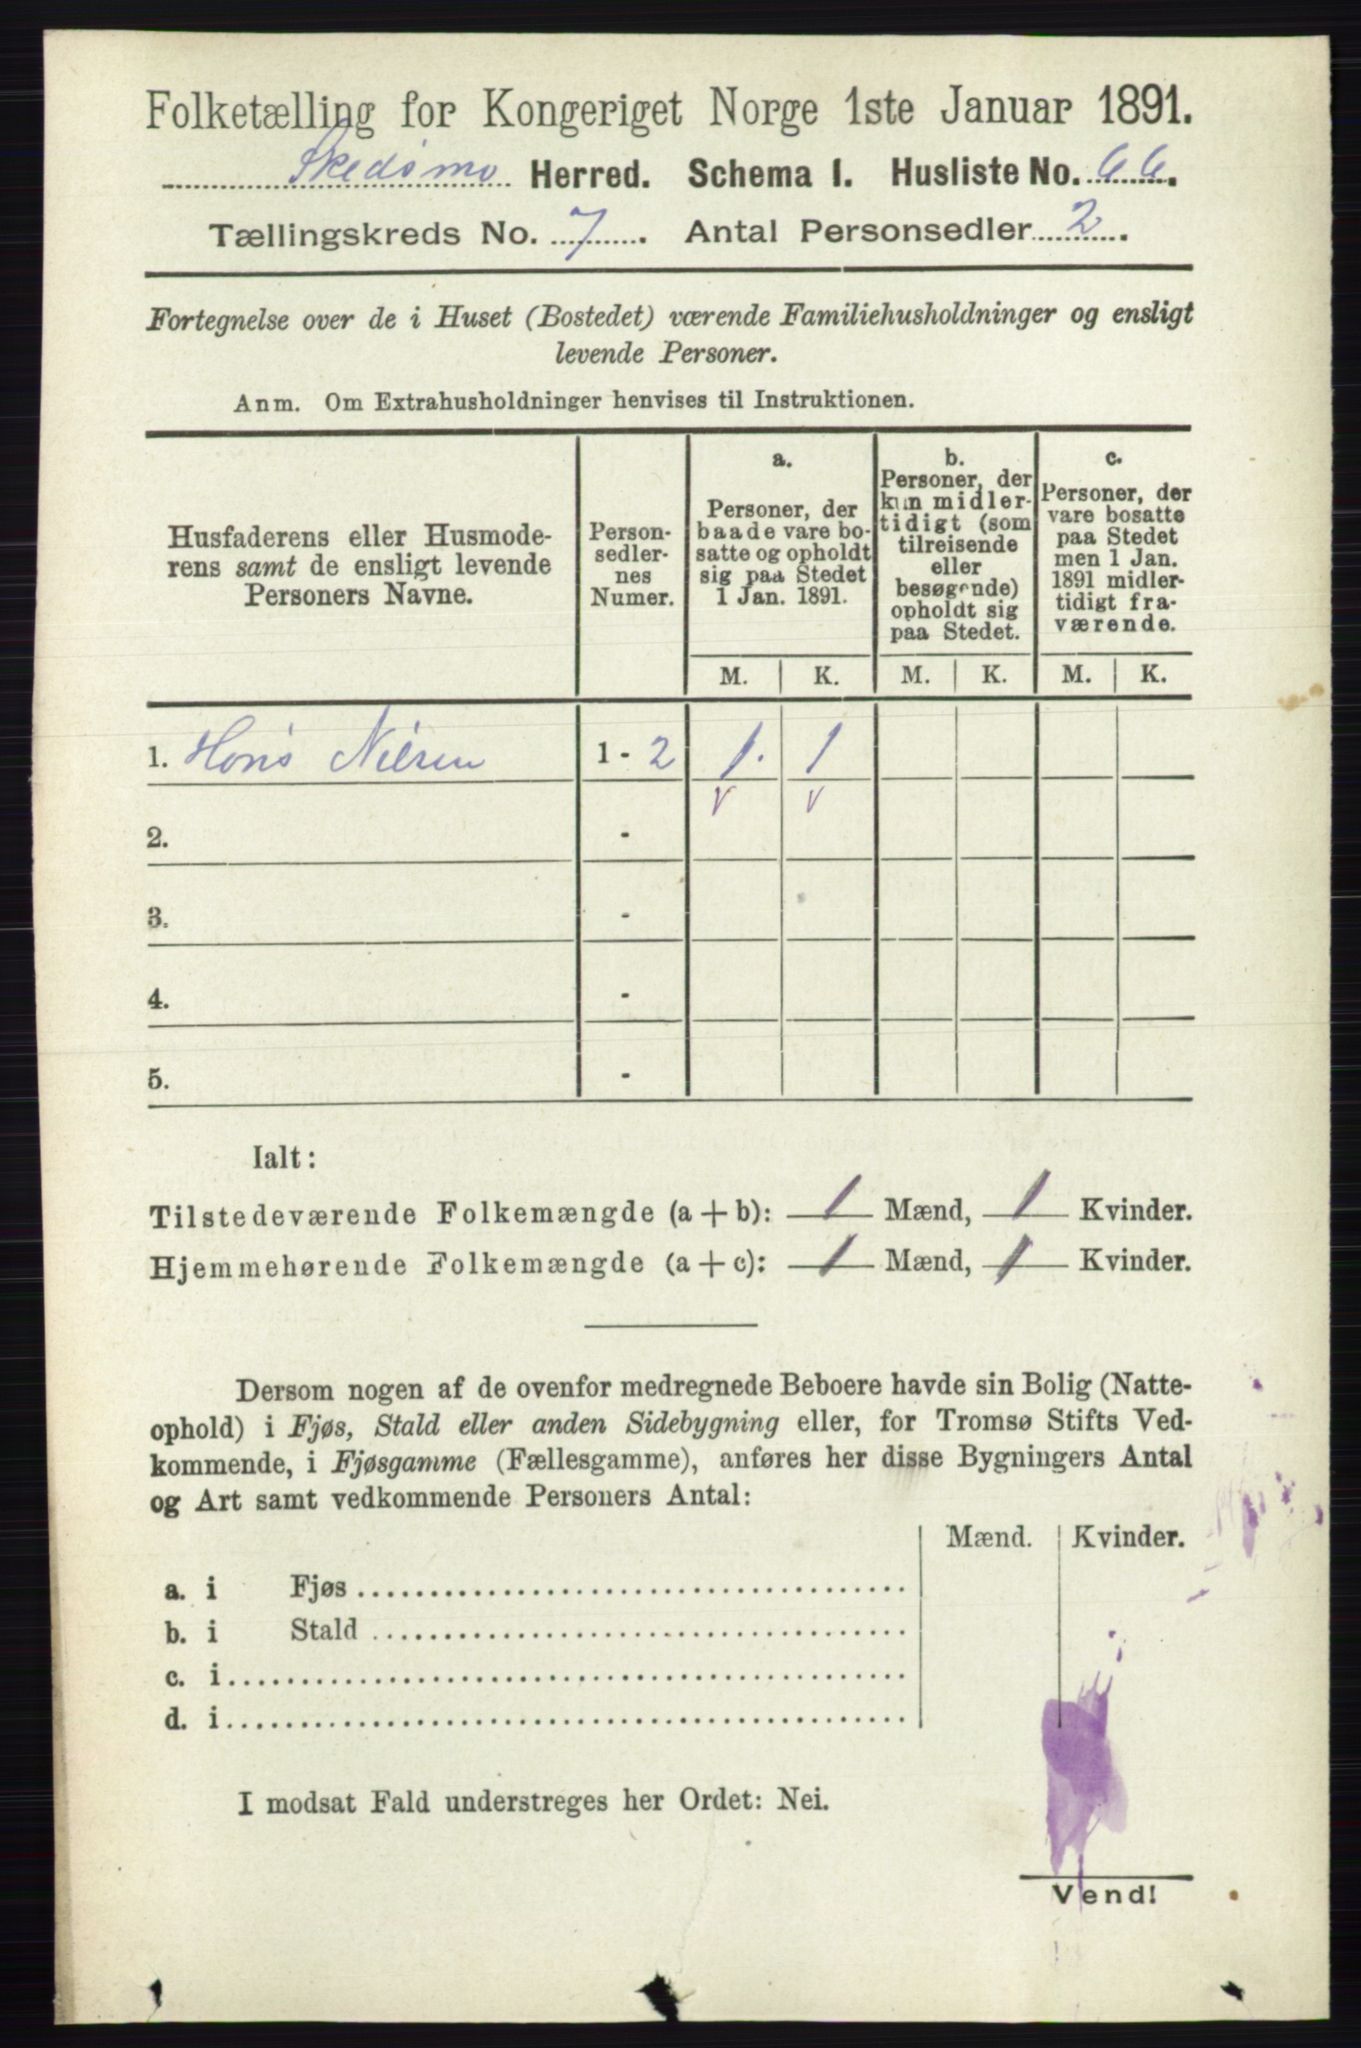 Folketælling for Kongeriget Norge 1ste Januar 1891.
Skedsmo Herred. Schema I. Husliste No. 66.
Tællingskreds No. 7. Antal Personsedler 2.
Fortegnelse over de i Huset (Bostedet) værende Familiehusholdninger og ensligt
levende Personer.
Anm. Om Extrahusholdninger henvises til Instruktionen.
Husfaderens eller Husmode-
rens samt de ensligt levende
Personers Navne.
Person-
sedler-
nes
Numer.
a.
Personer, der
baade vare bo-
satte og opholdt
sig paa Stedet
1 Jan. 1891.
b.
Personer, der
kun midler-
tidigt (som
tilreisende
eller
besøgende)
opholdt sig
paa Stedet.
c.
Personer, der
vare bosatte
paa Stedet
men 1 Jan.
1891 midler-
tidigt fra-
værende.
M. K. M. K. M. K.
1. Hans Nilsen 1 - 2 1. 1
v v
2. -
3. -
4. -
5. -
Ialt:
Tilstedeværende Folkemængde (a + b): 1 Mænd, 1 Kvinder.
Hjemmehørende Folkemængde (a + c): 1 Mænd, 1 Kvinder.
Dersom nogen af de ovenfor medregnede Beboere havde sin Bolig (Natte-
ophold) i Fjøs, Stald eller anden Sidebygning eller, for Tromsø Stifts Ved-
kommende, i Fjøsgamme (Fællesgamme), anføres her disse Bygningers Antal
og Art samt vedkommende Personers Antal:
Mænd. Kvinder.
a. i Fjøs
b. i Stald
c. i
d. i
I modsat Fald understreges her Ordet: Nei.
Vend!